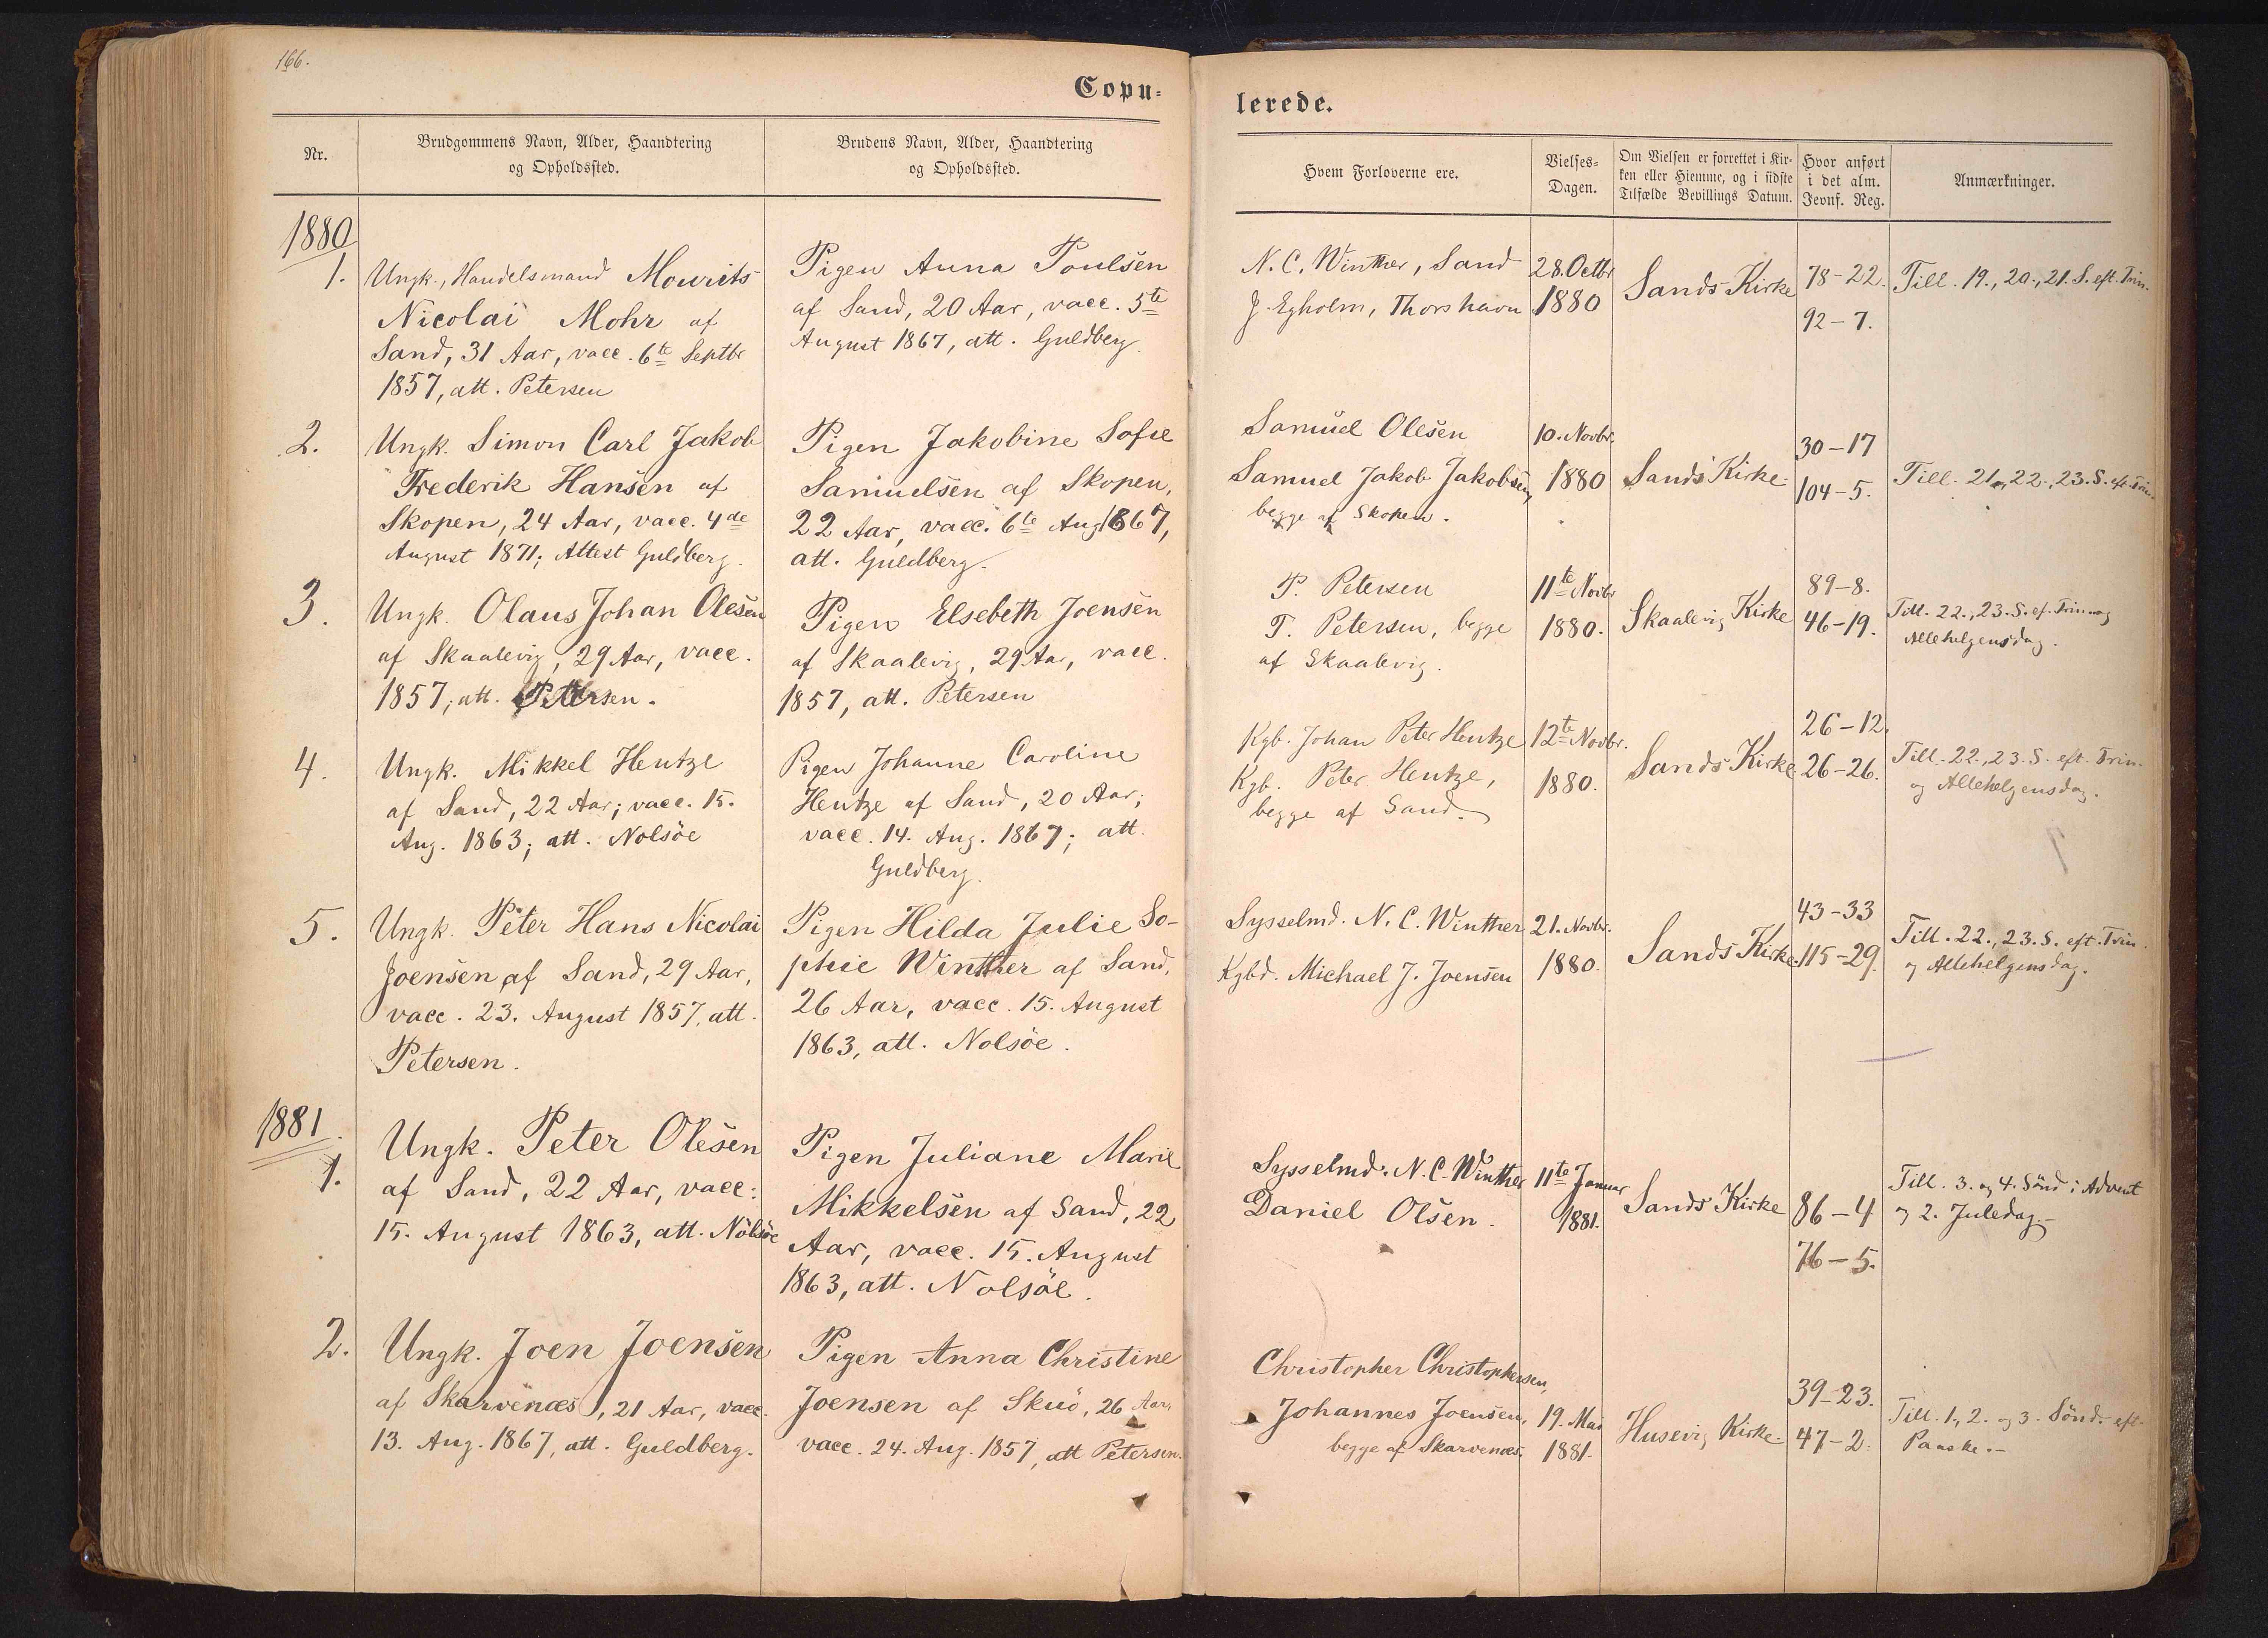 166.
Copu-
lerede.
Nr.
Brudgommens Navn, Alder, Haandtering
og Opholdssted.
Brudens Navn, Alder, Haandtering
og Opholdssted.
Hvem Forloverne ere.
Vielses-
Dagen.
Om Vielsen er forrettet i Kir-
ken eller Hiemme, og i sidste
Tilfælde Bevillings Datum.
Hvor anført
i det alm.
Jevnf. Reg.
Anmærkninger.
1880
1.
Ungk., Handelsmand Mourits
Nicolai Mohr af
Sand, 31 Aar, vacc. 6te Septbr
1857, att. Petersen
Pigen Anna Poulsen
af Sand, 20 Aar, vacc. 5te
August 1867, att. Guldberg.
N. C. Winther, Sand
J. Egholm, Thorshavn
28. Octbr
1880
Sands Kirke
78-22.
92-7.
Till. 19., 20., 21. S. eft. Trin.
2.
Ungk. Simon Carl Jakob
Frederik Hansen af
Skopen, 24 Aar, vacc. 4de
August 1871; Attest Guldberg.
Pigen Jakobine Sofie
Samuelsen af Skopen,
22 Aar, vacc. 6te Aug 1867,
att. Guldberg.
Samuel Olesen
Samuel Jakob Jakobsen,
begge af Skopen.
10. Novbr.
1880
Sands Kirke
30-17
104-5.
Till. 21., 22., 23. S. ef. Trin.
3.
Ungk. Olaus Johan Olesen
af Skaalevig, 29 Aar, vacc.
1857; att. Petersen.
Pigen Elsebeth Joensen
af Skaalevig, 29 Aar, vacc.
1857, att. Petersen
P. Petersen
T. Petersen, begge
af Skaalevig.
11te Novbr
1880.
Skaalevig Kirke
89-8.
46-19.
Till. 22., 23. S. ef. Trin. og
Allehelgensdag.
4.
Ungk. Mikkel Hentze
af Sand, 22 Aar; vacc. 15.
Aug. 1863; att. Nolsöe
Pigen Johanne Caroline
Hentze af Sand, 20 Aar;
vacc. 14. Aug. 1867; att.
Guldberg.
Kgb. Johan Peter Hentze
Kgb. Peter Hentze,
begge af Sand.
12te Novbr.
1880.
Sands Kirke
26-12.
26-26.
Till. 22., 23. S. eft. Trin.
og Allehelgensdag.
5.
Ungk. Peter Hans Nicolai
Joensen af Sand, 29 Aar,
vacc. 23. August 1857, att.
Petersen.
Pigen Hilda Julie So-
phie Winther af Sand,
26 Aar, vacc. 15. August
1863, att. Nolsöe.
Sysselmd. N. C. Winther
Kgbd. Michael J. Joensen
21. Novbr.
1880.
Sands Kirke.
43-33
115-29.
Till. 22., 23. S. eft. Trin.
og Allehelgensdag.
1881.
1.
Ungk. Peter Olesen
af Sand, 22 Aar, vacc:
15. August 1863, att. Nölsöe
Pigen Juliane Marie
Mikkelsen af Sand, 22
Aar, vacc. 15. August
1863, att. Nolsöe.
Sysselmd. N. C. Winther
Daniel Olsen.
11te Januar
1881.
Sands Kirke
86-4
76-5.
Till. 3. og 4. Sönd i Advent
og 2. Juledag.-
2.
Ungk. Joen Joensen
af Skarvenæs, 21 Aar, vacc.
13. Aug. 1867, att. Guldberg.
Pigen Anna Christine
Joensen af Skuö, 26 Aar,
vacc. 24. Aug. 1857, att Petersen.
Christopher Christophersen,
Johannes Joensen,
begge af Skarvenæs.
19. Mai
1881.
Husevig Kirke.
39-23.
47-2.
Till. 1., 2. og 3. Sönd. eft.
Paaske.-